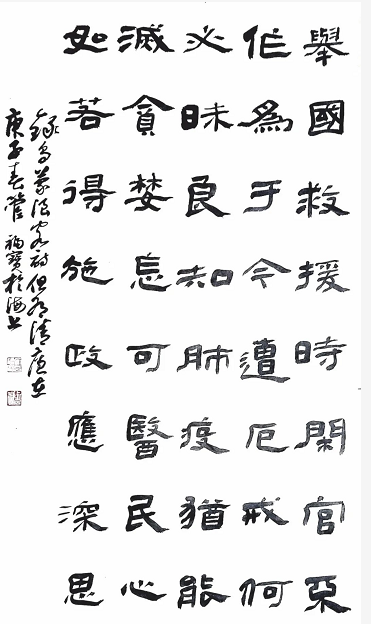 舉國救援時閑官亟
作為于今遭厄戒何
必昧良知肺疫猶能
滅貪婪忘可醫民心
如若得施政應深思
錄詩但為清廉在
庚子春管福寶於海上